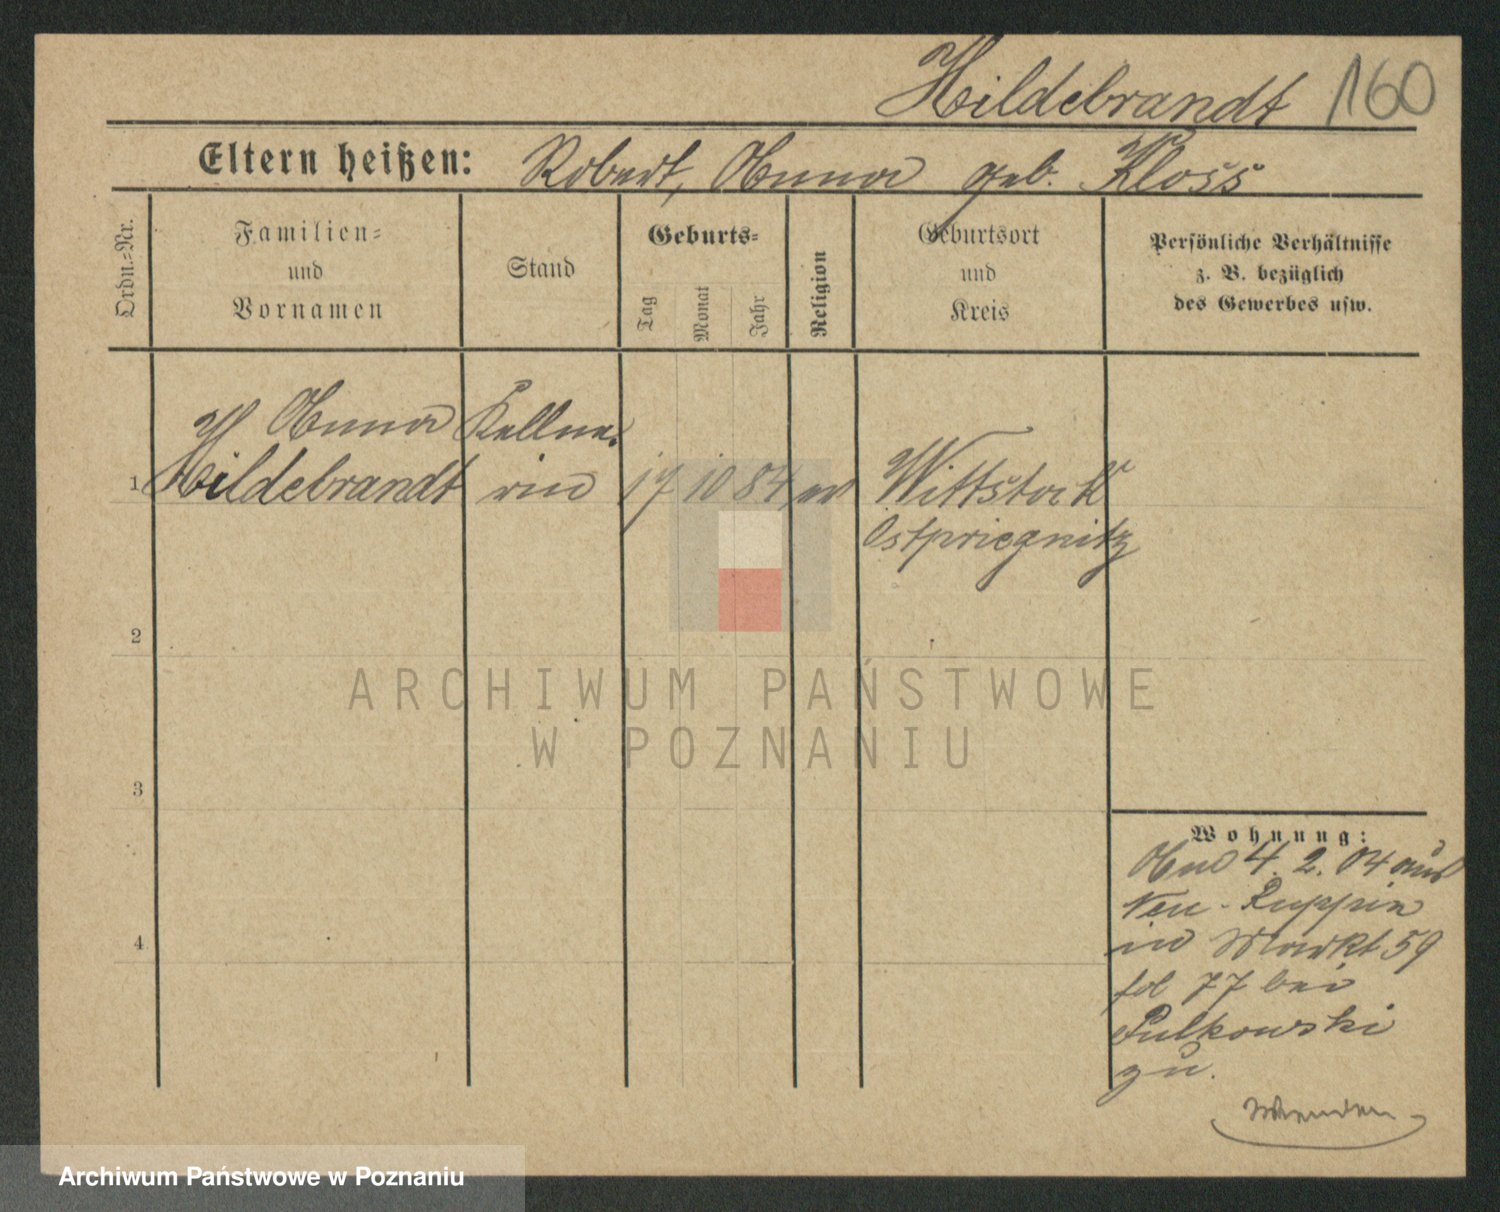 Hildebrandt 160
Eltern heißen: Robert, Anna geb. Kloss
Ordn.=Nr.
Familien=
und
Vornamen
Stand
Geburts=
Tag
Monat
Jahr
Religion
Geburtsort
und
Kreis
Persönliche Verhältnisse
z. B. bezüglich
des Gewerbes usw.
Anna Kellne.
1 Hildebrandt rin 17 10 84 Wittstock
Ostpriegnitz
2
3
4
ARCHIWUM PAŃSTWOWE
W POZNANIU
Wohnung:
4. 2. 04 aus
Neu-Ruppin
in Markt 59
fol 77 bei
Pulkowski
zu.
Wenden
Archiwum Państwowe w Poznaniu